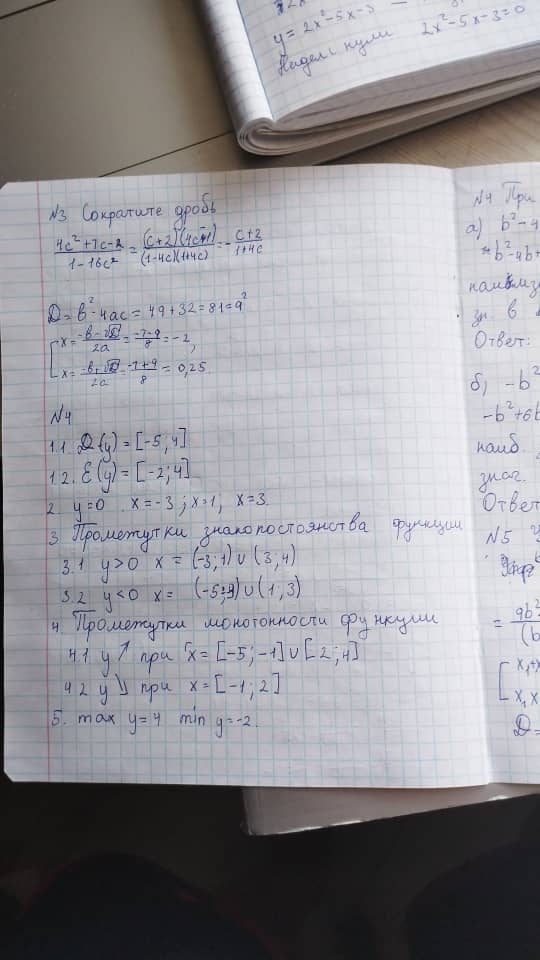 y = 2x²-5x-3 —
2x²-5x-3=0
нули
№3 Сократите дробь
(4c²+7c-2)/(1-16c²) = (c+2)(4c-1)/(1-4c)(1+4c) = -(c+2)/(1+4c)
D = b²-4ac = 49+32=81=9²
x = (-b-√D)/2a = (-7-9)/8 = -2,
x = (-b+√D)/2a = (-7+9)/8 = 0,25.
№4
1.1. D(y) = [-5, 4]
1.2. E(y) = [-2; 4]
2. y=0 x=-3; x=1; x=3.
3 Прометутки знакопостоянства функции
3.1 y>0 x = (-3; 1) ∪ (3; 4)
3.2 y<0 x = (-5;-3) ∪ (1; 3)
4. Прометутки монотонности функции
4.1 y ↗ при x = [-5; -1] ∪ [2; 4]
4.2 y ↘ при x = [-1; 2]
5. max y=4 min y=-2.
№4 При
а) b²-4
-b²-4b+
зн. в
Ответ:
б) -b²
-b²+6b
наиб.
знач.
Ответ
№5
= 9b²
(b
x₁+x
x₁x
D=